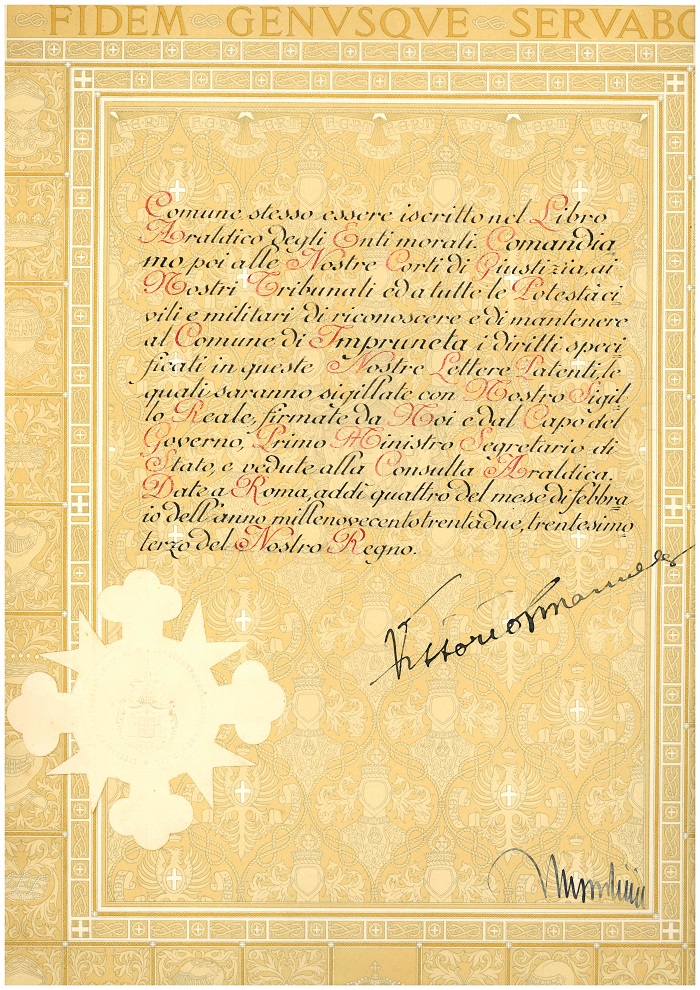 FIDEM GENVSQVE SERVABO
Comune stesso essere iscritto nel Libro
Araldico degli Enti morali. Comandia
mo poi alle Nostre Corti di Giustizia, ai
Nostri Tribunali ed a tutte le Potestà ci
vili e militari di riconoscere e di mantenere
al Comune di Impruneta i diritti speci
ficati in queste Nostre Lettere Patenti, le
quali saranno sigillate con Nostro Sigil
lo Reale, firmate da Noi e dal Capo del
Governo, Primo Ministro Segretario di
Stato, e vedute alla Consulta Araldica.
Date a Roma, addì quattro del mese di febbra
io dell'anno millenovecentotrentadue, trentesimo
terzo del Nostro Regno.
Vittorio Emanuele
Mussolini